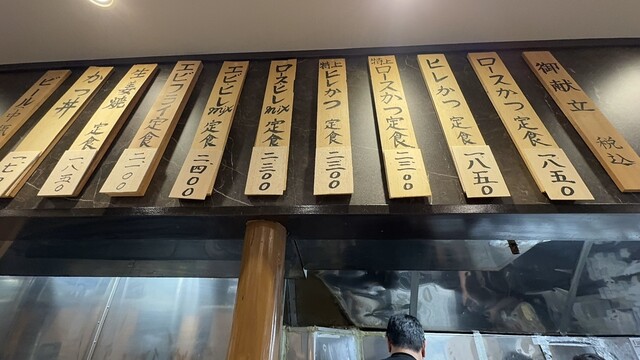 御献立 税込
ロースかつ定食 一八五〇
ヒレかつ定食 一八五〇
特上ロースかつ定食 二三〇〇
特上ヒレかつ定食 二三〇〇
ロースヒレmix定食 二三〇〇
エビヒレmix定食 二四〇〇
エビフライ定食 二一〇〇
生姜焼定食 一八五〇
かつ丼
ビール中瓶